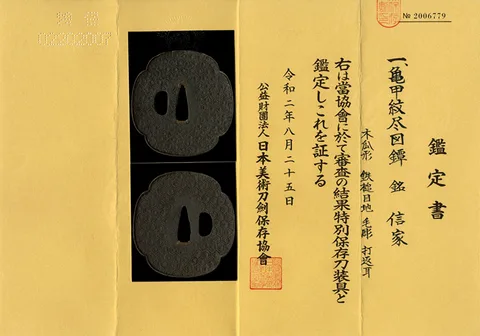 № 2006779
鑑定書
一、亀甲紋尽図鐔 銘 信家
木瓜形 鉄槌目地 毛彫 打返耳
右は當協會に於て審査の結果特別保存刀装具と
鑑定しこれを証する
令和二年八月二十五日
公益財團法人 日本美術刀劍保存協會